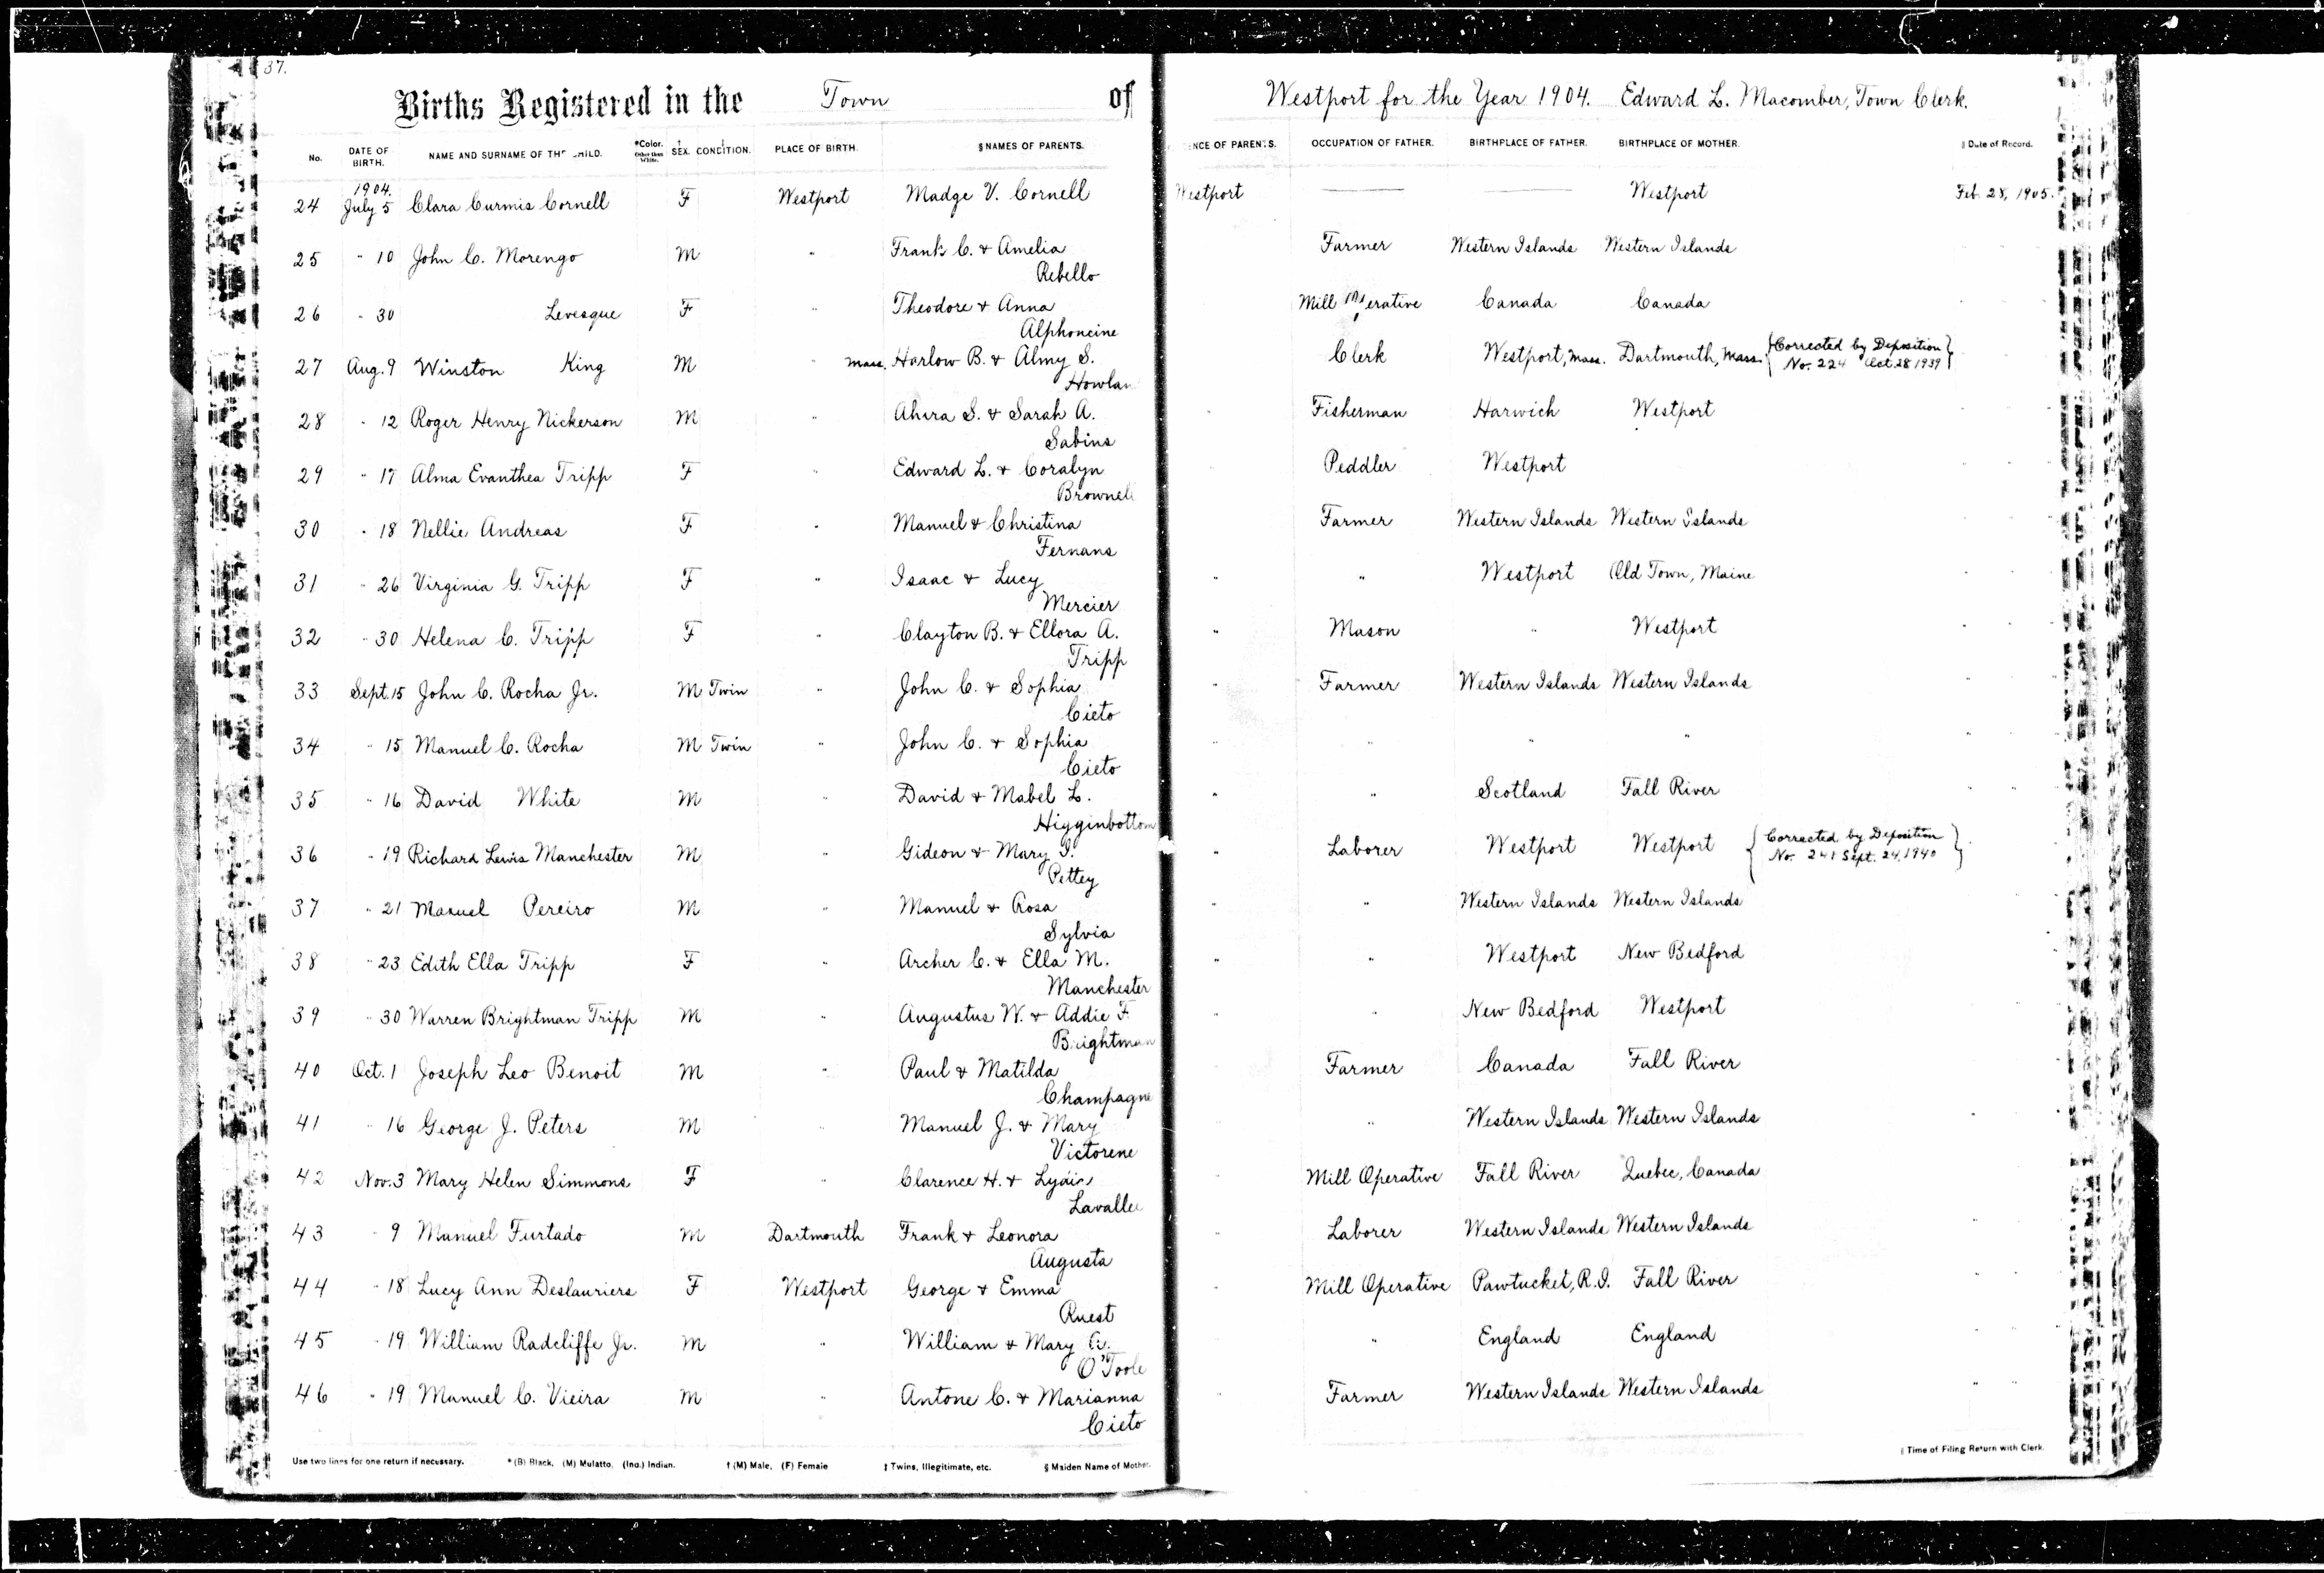 37.
Births Registered in the Town of Westport for the Year 1904. Edward L. Macomber, Town Clerk.
No. DATE OF BIRTH. NAME AND SURNAME OF THE CHILD. *Color. Other than White. † SEX. ‡ CONDITION. PLACE OF BIRTH. § NAMES OF PARENTS. NCE OF PARENTS. OCCUPATION OF FATHER. BIRTHPLACE OF FATHER. BIRTHPLACE OF MOTHER. ‖ Date of Record.
1904.
24 July 5 Clara Cornell F Westport Madge V. Cornell Westport — — Westport Feb. 28, 1905.
25 " 10 John C. Morengo M " Frank C. & Amelia Farmer Western Islands Western Islands
Rebello
26 " 30 Levesque F " Theodore & Anna Mill Operative Canada Canada
Alphoncine
27 Aug. 9 Winston King M " Mass. Harlow B. & Almy S. Clerk Westport, Mass. Dartmouth, Mass. {Corrected by Deposition No. 224 Oct. 28 1939}
Howlan
28 " 12 Roger Henry Nickerson M " Ahira S. & Sarah A. Fisherman Harwich Westport
Sabins
29 " 17 Alma Evanthea Tripp F " Edward L. & Coralyn Peddler Westport
Brownell
30 " 18 Nellie Andreas F " Manuel & Christina Farmer Western Islands Western Islands
Fernans
31 " 26 Virginia G. Tripp F " Isaac & Lucy " " Westport Old Town, Maine
Mercier
32 " 30 Helena C. Tripp F " Clayton B. & Ellora A. " Mason " Westport
Tripp
33 Sept. 15 John C. Rocha Jr. M Twin " John C. & Sophia " Farmer Western Islands Western Islands
Cieto
34 " 15 Manuel C. Rocha M Twin " John C. & Sophia " " " "
Cieto
35 " 16 David White M " David & Mabel L. " " Scotland Fall River
Higginbottom
36 " 19 Richard Lewis Manchester M " Gideon & Mary I. " Laborer Westport Westport {Corrected by Deposition No. 241 Sept. 24, 1940}
Pettey
37 " 21 Manuel Pereiro M " Manuel & Rosa " " Western Islands Western Islands
Sylvia
38 " 23 Edith Ella Tripp F " Archer C. & Ella M. " " Westport New Bedford
Manchester
39 " 30 Warren Brightman Tripp M " Augustus W. & Addie F. " New Bedford Westport
Brightman
40 Oct. 1 Joseph Leo Benoit M " Paul & Matilda Farmer Canada Fall River
Champagne
41 " 16 George J. Peters M " Manuel J. & Mary " Western Islands Western Islands
Victorene
42 Nov. 3 Mary Helen Simmons F " Clarence H. & Lydia Mill Operative Fall River Quebec, Canada
Lavallee
43 " 9 Manuel Furtado M Dartmouth Frank & Leonora Laborer Western Islands Western Islands
Augusta
44 " 18 Lucy Ann Deslauriers F Westport George & Emma Mill Operative Pawtucket, R.I. Fall River
Ruest
45 " 19 William Radcliffe Jr. M " William & Mary " England England
O'Toole
46 " 19 Manuel C. Vieira M " Antone C. & Marianna Farmer Western Islands Western Islands
Cieto
Use two lines for one return if necessary. * (B) Black, (M) Mulatto, (Ind.) Indian. † (M) Male, (F) Female ‡ Twins, Illegitimate, etc. § Maiden Name of Mother. ‖ Time of Filing Return with Clerk.